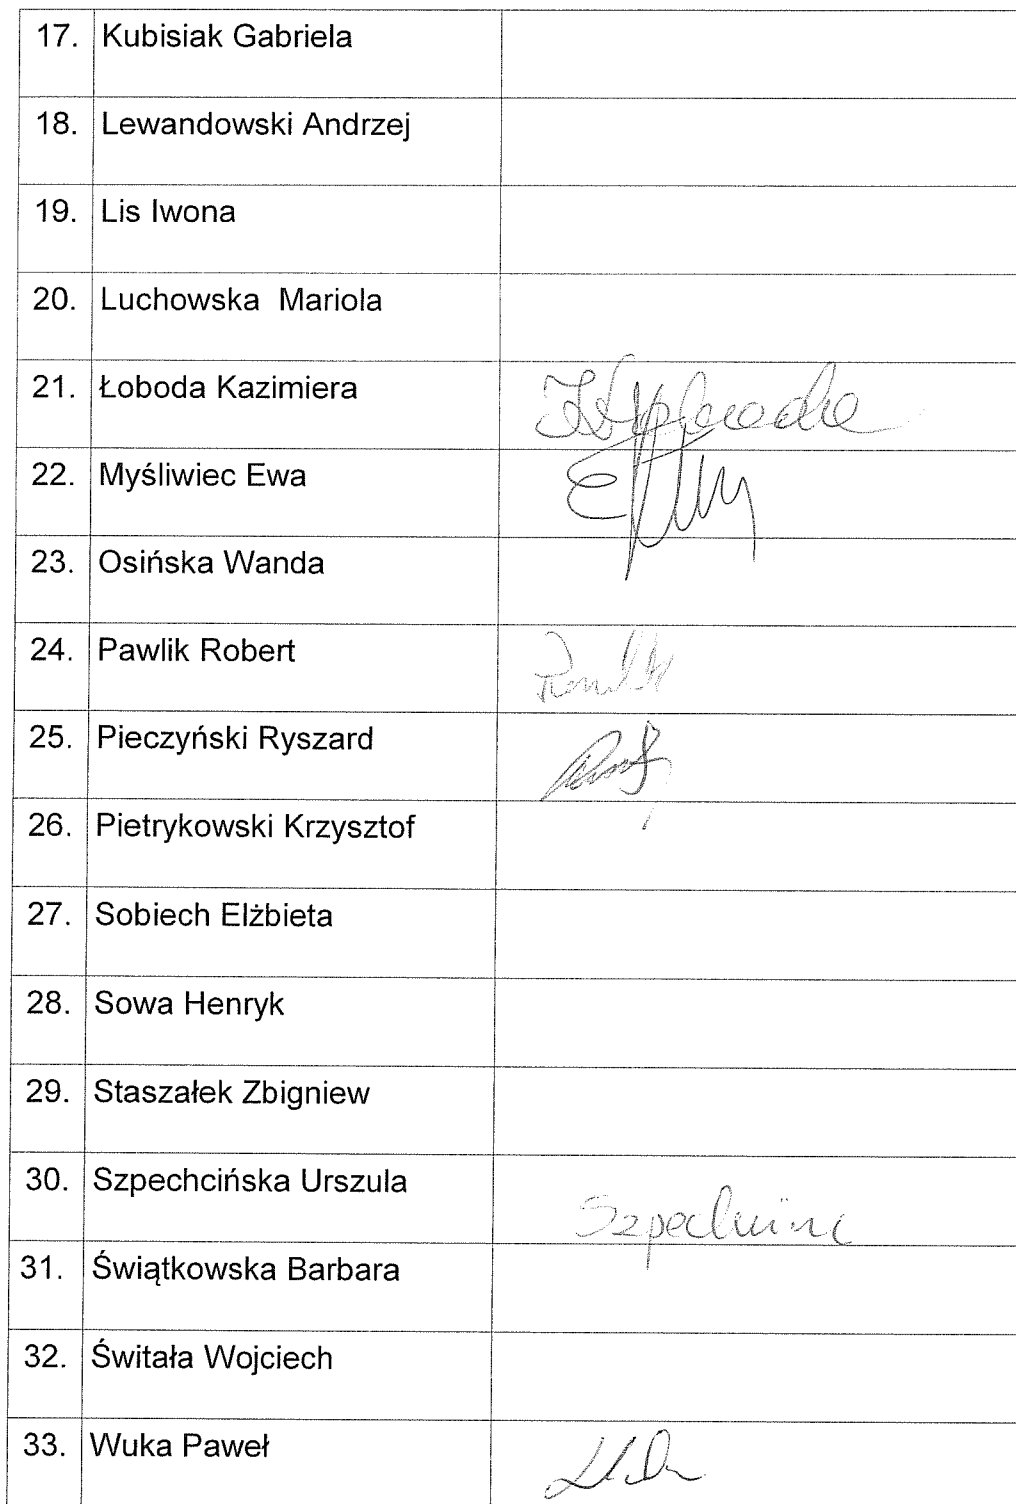 17. Kubisiak Gabriela
18. Lewandowski Andrzej
19. Lis Iwona
20. Luchowska  Mariola
21. Łoboda Kazimiera
22. Myśliwiec Ewa
23. Osińska Wanda
24. Pawlik Robert
25. Pieczyński Ryszard
26. Pietrykowski Krzysztof
27. Sobiech Elżbieta
28. Sowa Henryk
29. Staszałek Zbigniew
30. Szpechcińska Urszula
31. Świątkowska Barbara
32. Świtała Wojciech
33. Wuka Paweł